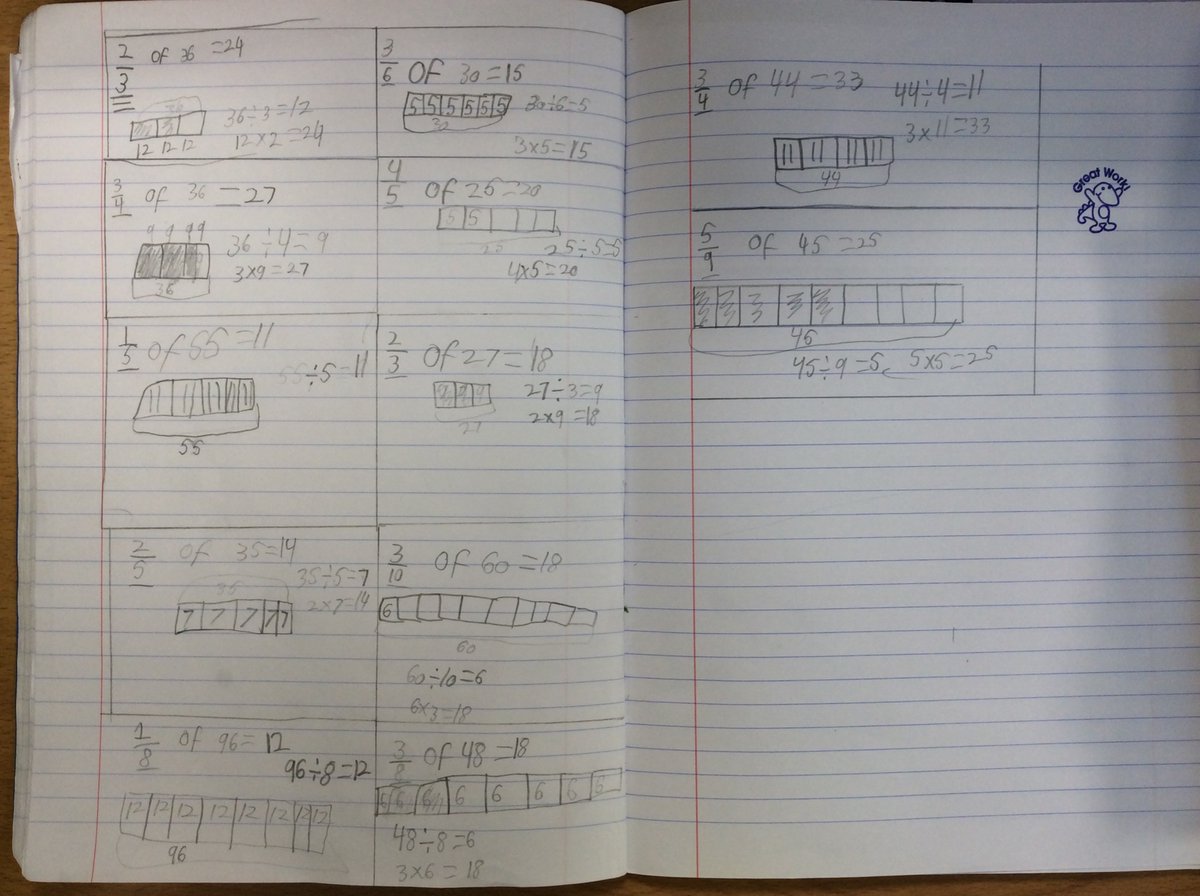 2/3 of 36 =24
36
36÷3=12
12×2=24
12 12 12
3/4 of 36 =27
9 9 9 9
36÷4=9
3×9=27
36
1/5 of 55 =11
55÷5=11
11 11 11 11 11
55
2/5 of 35=14
35÷5=7
35
2×7=14
7 7 7 7 7
1/8 of 96= 12
96÷8=12
12 12 12 12 12 12 12 12
96
3/6 of 30=15
5 5 5 5 5 5
30÷6=5
30
3×5=15
4/5 of 25=20
5 5
25
25÷5=5
4×5=20
2/3 of 27=18
9 9 9
27÷3=9
27
2×9=18
3/10 of 60=18
6
60
60÷10=6
6×3=18
3/8 of 48=18
6 6 6 6 6 6 6 6
48÷8=6
3×6=18
3/4 of 44=33
44÷4=11
3×11=33
11 11 11 11
44
Great Work!
5/9 of 45=25
45
45÷9=5 5×5=25